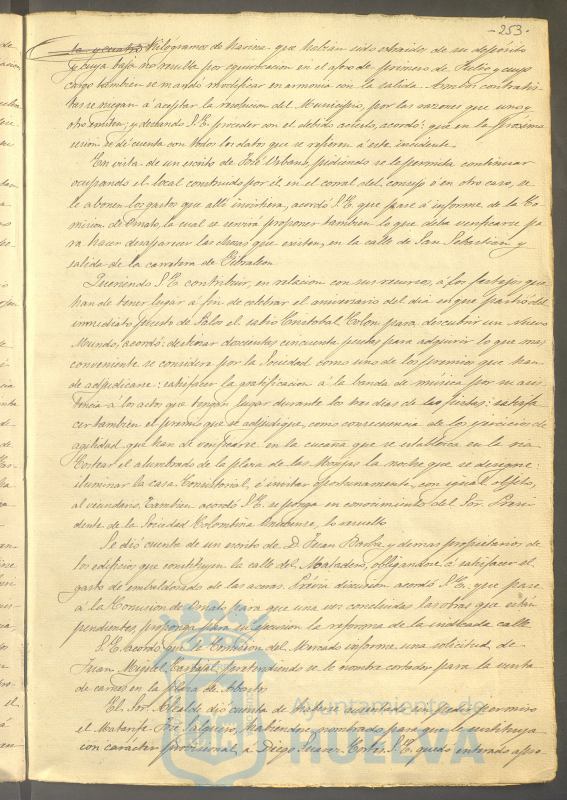 -253-
ta y cuatro Kilógramos de harina que habian sido extraidos de su depósito
y cuya baja no resulta por equivocacion en el aforo de primero de Julio y cuyo
cargo tambien se mandó modificar en armonía con la salida. Ambos contratis-
tas se niegan á aceptar la resolucion del Municipio, por las razones que uno y
otro emiten; y deseando S. E. proceder con el debido acierto, acordó: que en la próxima
sesion se dé cuenta con todos los datos que se refieren á este incidente.
En vista de un escrito de José Urbano, pidiendo se le permita continuar
ocupando el local construido por él en el corral del concejo ó en otro caso, se
le abonen los gastos que allí invirtiera, acordó S. E. que pase á informe de la Co-
mision de Ornato, la cual se servirá proponer tambien lo que deba verificarse pa-
ra hacer desaparecer las chozas que existen, en la calle de San Sebastian y
salida de la carretera de Gibraleon.
Queriendo S. E. contribuir, en relacion con sus recursos, á los festejos que
han de tener lugar á fin de celebrar el aniversario del dia en que partió del
inmediato puerto de Palos el sabio Cristobal Colon para descubrir un Nuevo
Mundo, acordó: destinar doscientas cincuenta pesetas para adquirir lo que mas
conveniente se considere por la Sociedad como uno de los premios que han
de adjudicarse: satisfacer la gratificacion á la banda de música por su asis-
tencia á los actos que tengan lugar durante los tres dias de las fiestas: satisfa-
cer tambien el premio que se adjudique, como consecuencia de los ejercicios de
agilidad que han de verificarse en la cucaña que se establezca en la ria:
Costear el alumbrado de la plaza de las Monjas la noche que se designe:
iluminar la casa Consistorial, é invitar oportunamente, con igual objeto,
al vecindario. Tambien acordó S. E. se ponga en conocimiento del Sor. Presi-
dente de la Sociedad Colombina Onubense, lo resuelto.
Se dió cuenta de un escrito de D. Juan Barba y demas propietarios de
los edificios que constituyen la calle del Matadero, obligándose á satisfacer el
gasto de embaldosado de las aceras. Prévia discusion acordó S. E. que pase
á la Comision de Ornato para que una vez concluidas las obras que están
pendientes, proponga para su ejecucion la reforma de la indicada calle.
S. E. acordó que la Comision del Mercado informe una solicitud de
Juan Miguel Carbajal, pretendiendo se le nombre cortador para la venta
de carnes en la plaza de Abastos.
El Sor. Alcalde dió cuenta de haberse ausentado sin pedir permiso
el Matarife José Salguero, habiendo nombrado para que le sustituya
con carácter provisional, á Diego Suarez Cortés. S. E. quedó enterado apro-
Ayuntamiento de
HUELVA